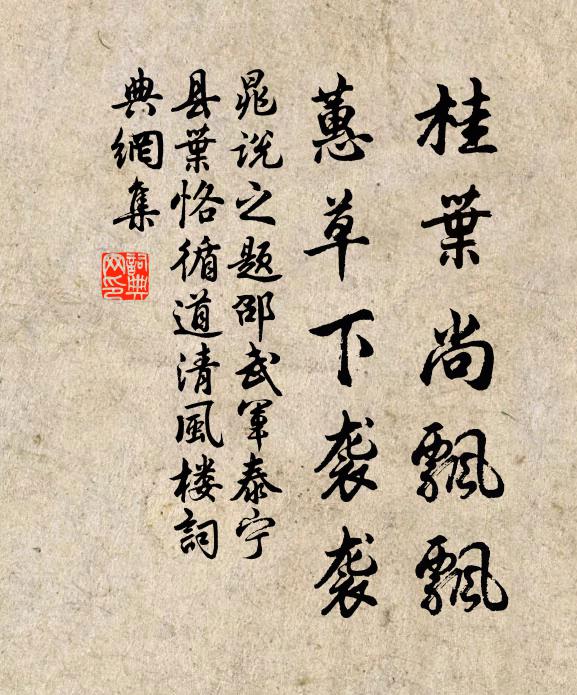 桂葉尚飄飄
蕙草下袭袭
晁说之题邵武军泰宁
县葉恪循道清風楼詞
典網集
詞典網印